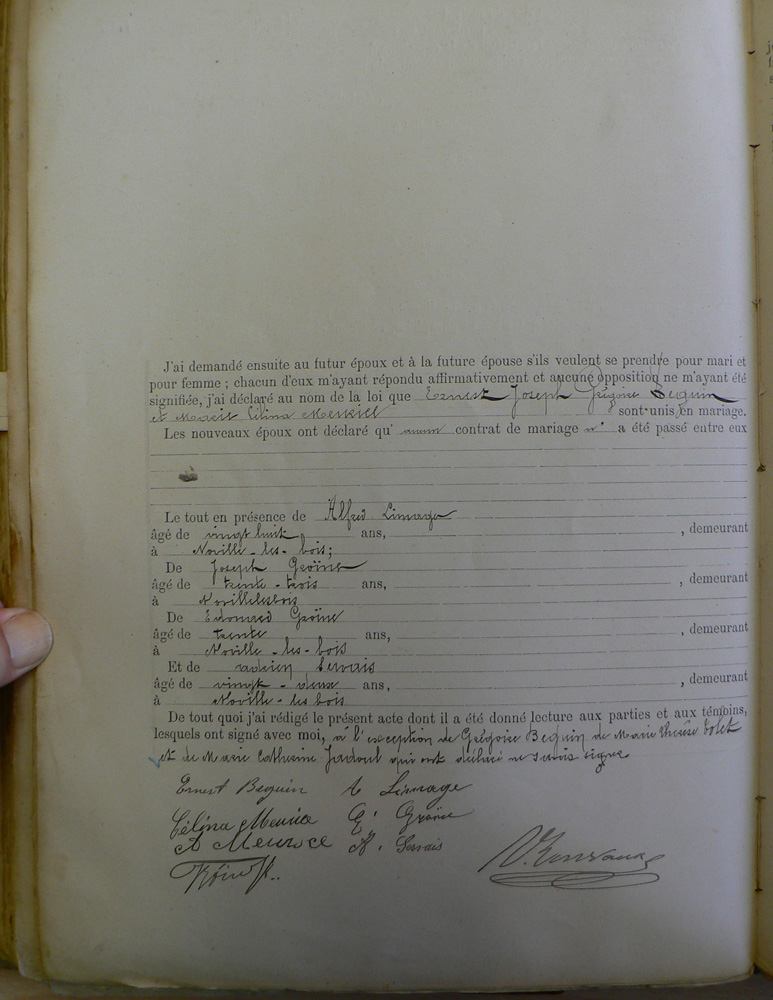 J'ai demandé ensuite au futur époux et à la future épouse s'ils veulent se prendre pour mari et
pour femme ; chacun d'eux m'ayant répondu affirmativement et aucune opposition ne m'ayant été
signifiée, j'ai déclaré au nom de la loi que Ernest Joseph Grégoire Beguin
et Marie Célina sont unis en mariage.
Les nouveaux époux ont déclaré qu' aucun contrat de mariage n' a été passé entre eux
Le tout en présence de Alfred Limage
âgé de vingt huit ans, , demeurant
à Noville-les-bois;
De Joseph Groïne
âgé de trente-trois ans, , demeurant
à Novillelesbois
De Edouard Groïne
âgé de trente ans, , demeurant
à Noville-les-bois
Et de Servais
âgé de vingt-deux ans, , demeurant
à Noville-les bois
De tout quoi j'ai rédigé le présent acte dont il a été donné lecture aux parties et aux témoins,
lesquels ont signé avec moi, à l'exception de Grégoire Beguin de Marie Thérèse
et de Marie Catherine Jadoul qui ont déclaré ne savoir signer
Ernest Beguin Limage
Célina E. Groïne
A A. Servais